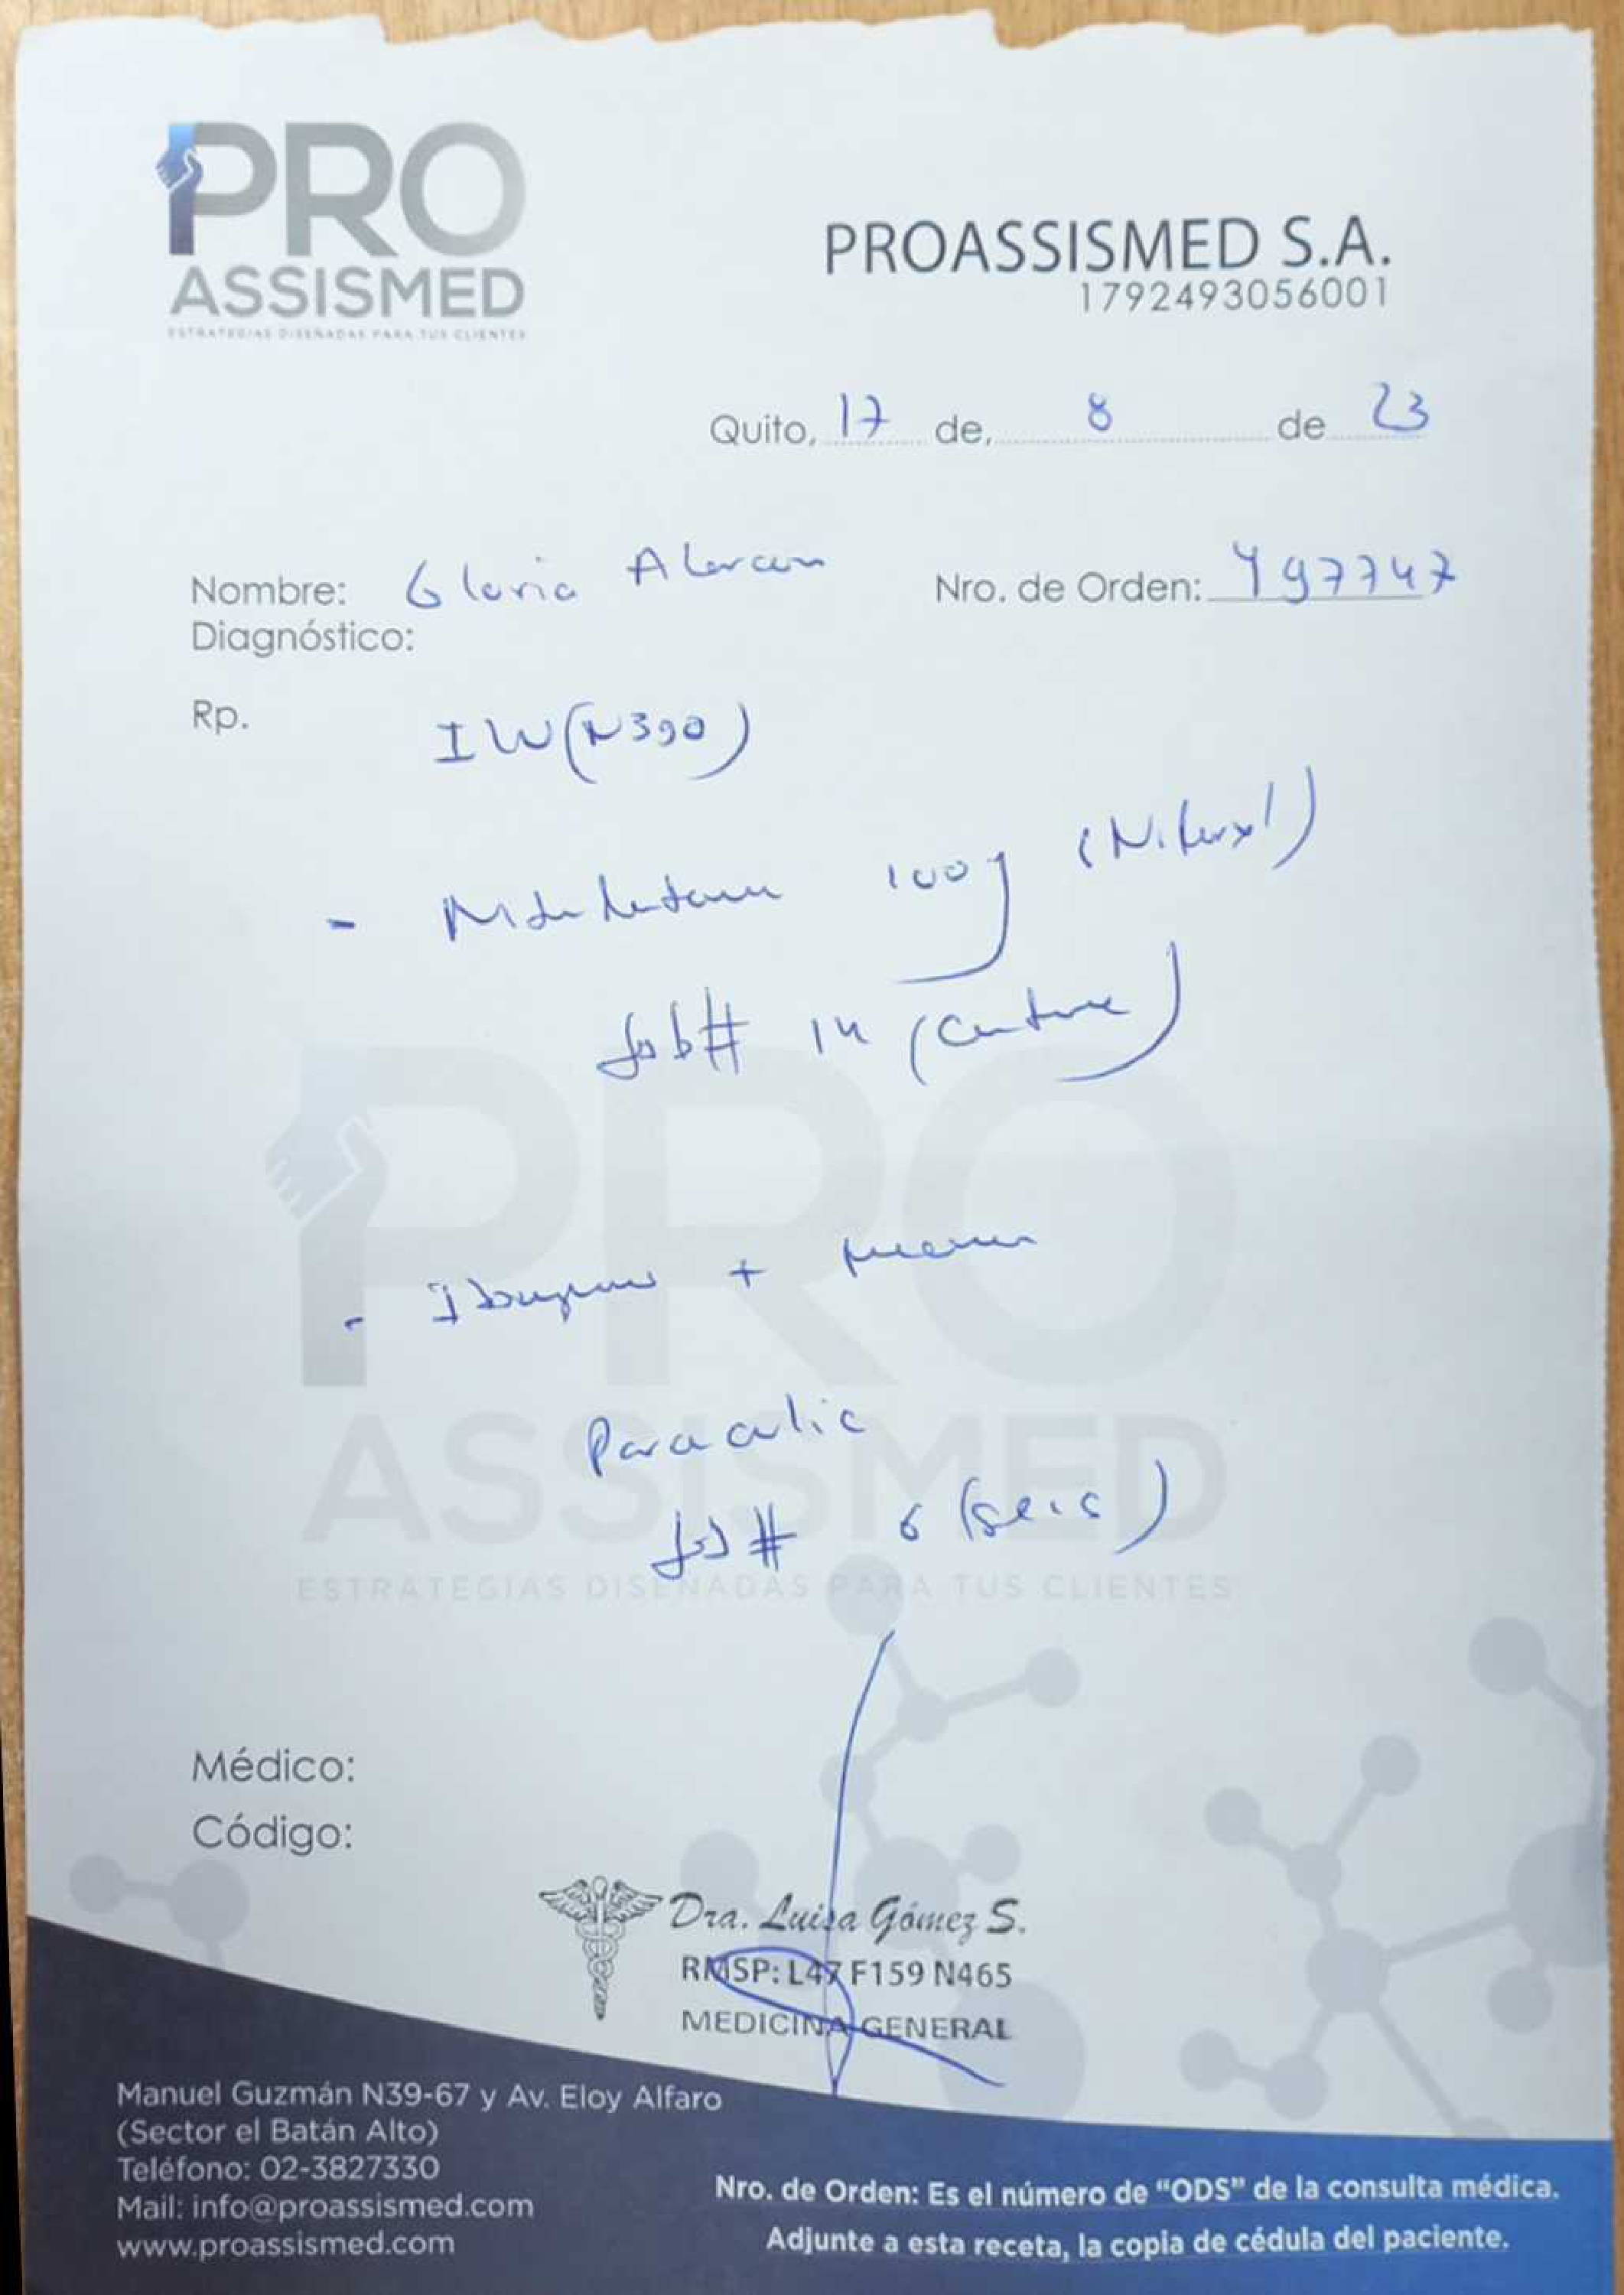 PRO
ASSISMED
ESTRATEGIAS DISEÑADAS PARA TUS CLIENTES
PROASSISMED S.A.
1792493056001
Quito, 17 de, 8 de 23
Nombre: Gloria Nro. de Orden: 497747
Diagnóstico:
Rp.
(N390)
- 100
# 14
- +
# 6 (seis)
PRO
ASSISMED
ESTRATEGIAS DISEÑADAS PARA TUS CLIENTES
Médico:
Código:
Dra. Luisa Gómez S.
RMSP: L47 F159 N465
MEDICINA GENERAL
Manuel Guzmán N39-67 y Av. Eloy Alfaro
(Sector el Batán Alto)
Teléfono: 02-3827330
Mail: info@proassismed.com
www.proassismed.com
Nro. de Orden: Es el número de “ODS” de la consulta médica.
Adjunte a esta receta, la copia de cédula del paciente.